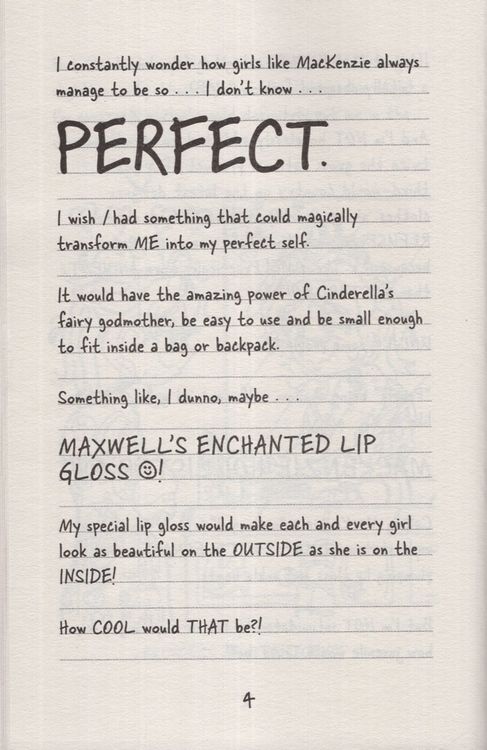 I constantly wonder how girls like MacKenzie always
manage to be so . . . I don't know . . .
PERFECT.
I wish I had something that could magically
transform ME into my perfect self.
It would have the amazing power of Cinderella's
fairy godmother, be easy to use and be small enough
to fit inside a bag or backpack.
Something like, I dunno, maybe . . .
MAXWELL'S ENCHANTED LIP
GLOSS ☺!
My special lip gloss would make each and every girl
look as beautiful on the OUTSIDE as she is on the
INSIDE!
How COOL would THAT be?!
4